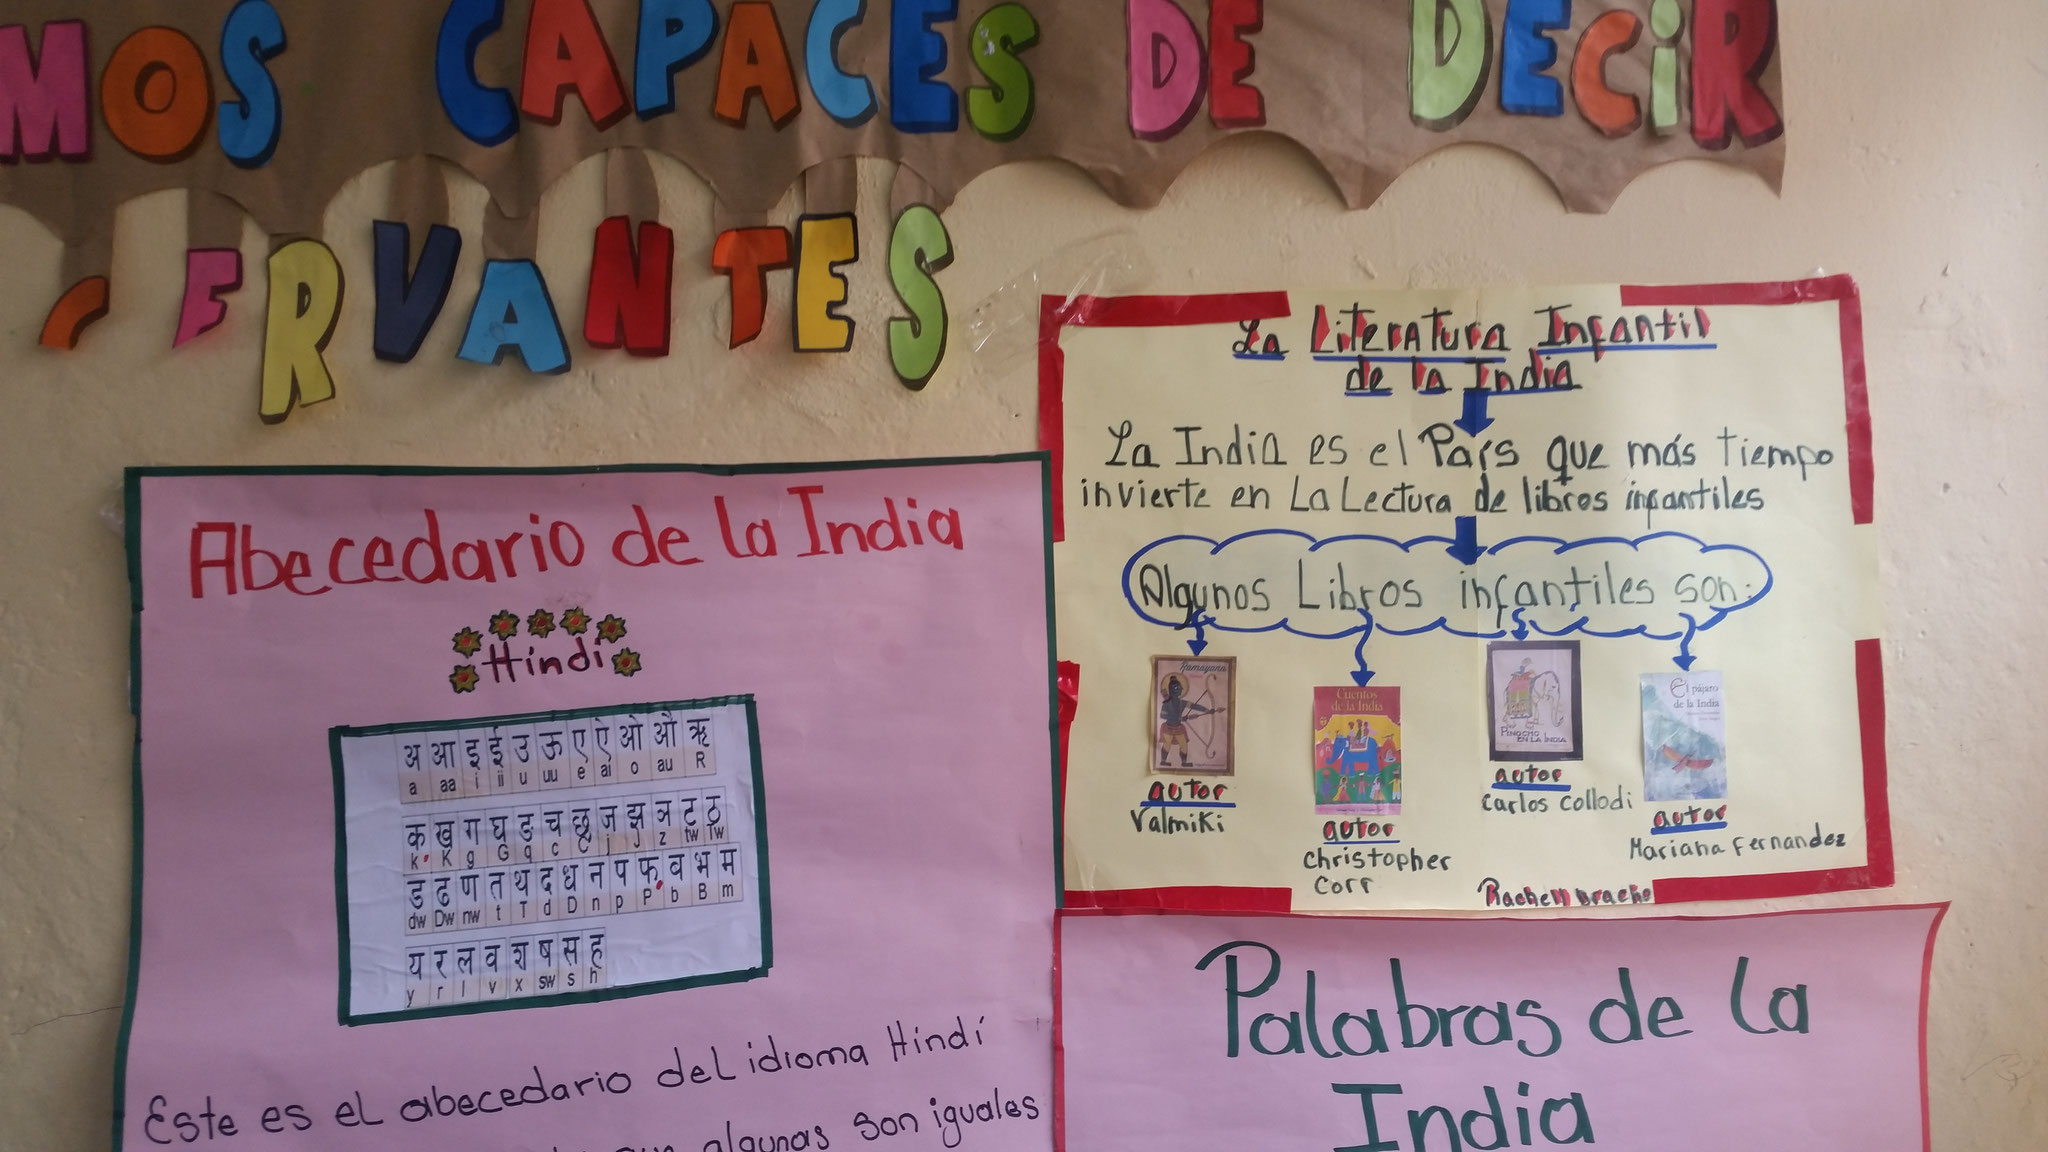 MOS CAPACES DE DECIR
ERVANTES
Abecedario de la India
Hindi
अ आ इ ई उ ऊ ए ऐ ओ औ ऋ
a aa i ii u uu e ai o au R
क ख ग घ ङ च छ ज झ ञ ट ठ
k K g G q c C j J z tw Tw
ड ढ ण त थ द ध न प फ व भ म
dw Dw nw t T d D n p P b B m
य र ल व श ष स ह
y r l v x sw s h
Este es el abecedario del idioma Hindí
algunas son iguales
La Literatura Infantil
de la India
La India es el País que más tiempo
invierte en La Lectura de libros infantiles
Algunos Libros infantiles son:
Ramayana
autor
Valmiki
Cuentos
de la India
autor
Christopher
Corr
PINOCHO
EN LA INDIA
autor
Carlos Collodi
El pájaro
de la India
autor
Mariana Fernandez
Rachell Bracho
Palabras de la
India